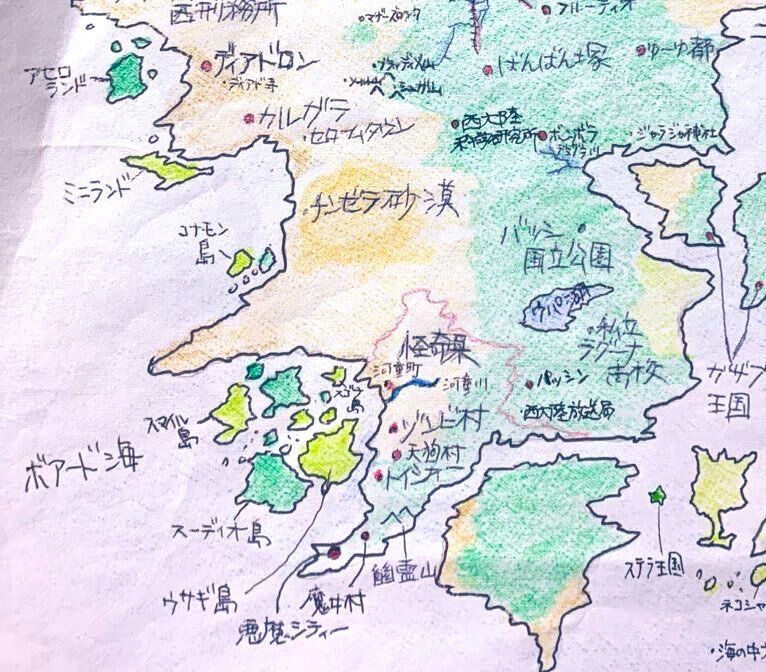 西刑務所
マザーズロック
フルーティオ
アセロ
ランド
ディアドロン
・ディアド寺
ばんばん塚
ゆーゆ都
カルガラ
・セロームタウン
西大陸
ボンボラ
・ジャラジャ神社
ミニランド
チンゼラ砂漠
コナモン
島
バッシン
国立公園
ウパ湖
・私立
ラグーナ
高校
怪奇県
河童町
河童川
パッシン
西大陸放送局
カザブ
王国
スマイル
島
ゾンビ村
天狗村
トイシティー
ボアードン海
スーディオ島
ウサギ島
悪魔シティー
魔女村
幽霊山
ステラ王国
ネコシャ
・海の中